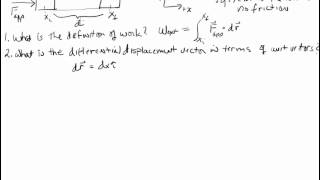 F app x_i d x_f +x no friction
1. What is the definition of work? W_app = ∫_{x_i}^{x_f} F_app · dr
2. what is the differential displacement vector in terms of unit vectors
dr⃗ = dx î